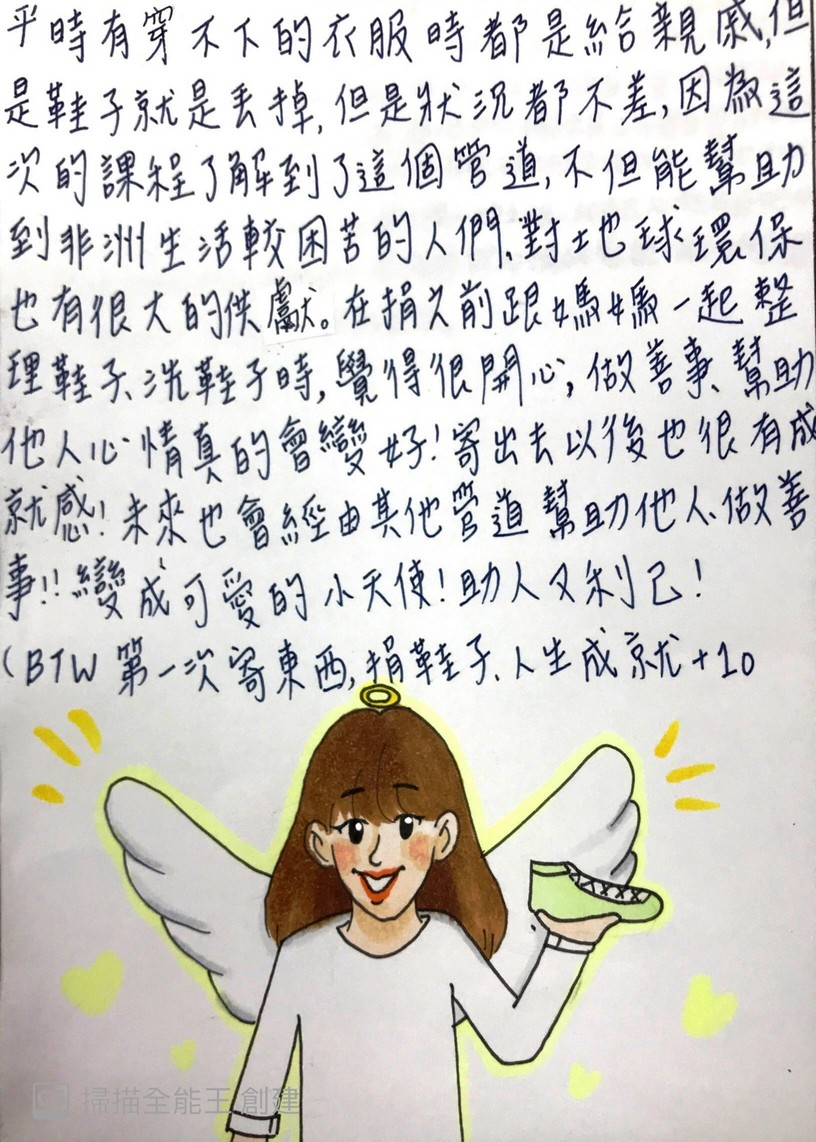 平時有穿不下的衣服時都是給親戚,但
是鞋子就是丟掉,但是狀況都不差,因為這
次的課程了解到了這個管道,不但能幫助
到非洲生活較困苦的人們、對地球環保
也有很大的供獻。在捐之前跟媽媽一起整
理鞋子、洗鞋子時,覺得很開心,做善事、幫助
他人心情真的會變好!寄出去以後也很有成
就感!未來也會經由其他管道幫助他人、做善
事!!變成可愛的小天使!助人又利己!
(BTW 第一次寄東西,捐鞋子、人生成就+10
掃描全能王 創建